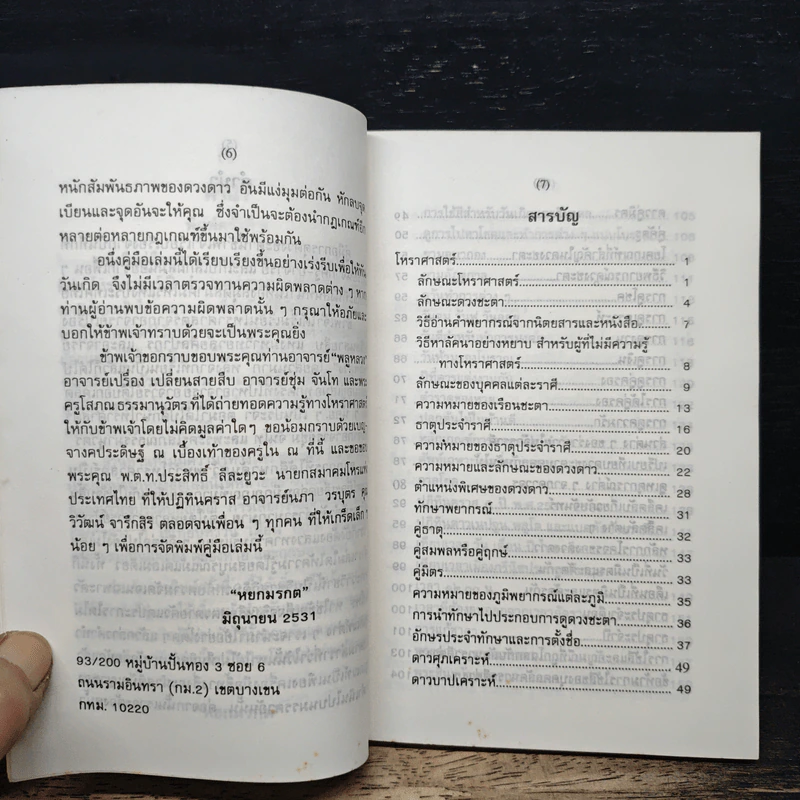 (6)
หนักสัมพันธภาพของดวงดาว อันมีแง่มุมต่อกัน หักลบจุด
เบียนและจุดอันจะให้คุณ ซึ่งจำเป็นจะต้องนำกฎเกณฑ์อีก
หลายต่อหลายกฎเกณฑ์ขึ้นมาใช้พร้อมกัน
อนึ่งคู่มือเล่มนี้ได้เรียบเรียงขึ้นอย่างเร่งรีบเพื่อให้ทัน
วันเกิด จึงไม่มีเวลาตรวจทานความผิดพลาดต่าง ๆ หาก
ท่านผู้อ่านพบข้อความผิดพลาดนั้น ๆ กรุณาให้อภัยและ
บอกให้ข้าพเจ้าทราบด้วยจะเป็นพระคุณยิ่ง
ข้าพเจ้าขอกราบขอบพระคุณท่านอาจารย์ "พลูหลวง"
อาจารย์เปรื่อง เปลี่ยนสายสืบ อาจารย์ชุ่ม จันโท และพระ
ครูโสภณธรรมานุวัตร ที่ได้ถ่ายทอดความรู้ทางโหราศาสตร์
ให้กับข้าพเจ้าโดยไม่คิดมูลค่าใดๆ ขอน้อมกราบด้วยเบญ
จางคประดิษฐ์ ณ เบื้องเท้าของครูใน ณ ที่นี้ และขอขอบ
พระคุณ พ.ต.ท.ประสิทธิ์ ลีละยูวะ นายกสมาคมโหรแห่ง
ประเทศไทย ที่ให้ปฏิทินคราส อาจารย์นภา วรบุตร คุณ
วิวัฒน์ จารึกสิริ ตลอดจนเพื่อน ๆ ทุกคน ที่ให้เกร็ดเล็ก ๆ
น้อย ๆ เพื่อการจัดพิมพ์คู่มือเล่มนี้
"หยกมรกต"
มิถุนายน 2531
93/200 หมู่บ้านปิ่นทอง 3 ซอย 6
ถนนรามอินทรา (กม.2) เขตบางเขน
กทม. 10220
(7)
สารบัญ
โหราศาสตร์ 1
ลักษณะโหราศาสตร์ 1
ลักษณะดวงชะตา 4
วิธีอ่านคำพยากรณ์จากนิตยสารและหนังสือ 7
วิธีหาลัคนาอย่างหยาบ สำหรับผู้ที่ไม่มีความรู้
ทางโหราศาสตร์ 8
ลักษณะของบุคคลแต่ละราศี 9
ความหมายของเรือนชะตา 13
ธาตุประจำราศี 16
ความหมายของธาตุประจำราศี 20
ความหมายและลักษณะของดวงดาว 22
ตำแหน่งพิเศษของดวงดาว 28
ทักษาพยากรณ์ 31
คู่ธาตุ 32
คู่สมพลหรือคู่ฤกษ์ 33
คู่มิตร 33
ความหมายของภูมิพยากรณ์แต่ละภูมิ 35
การนำทักษาไปประกอบการดูดวงชะตา 36
อักษรประจำทักษาและการตั้งชื่อ 37
ดาวศุภเคราะห์ 49
ดาวบาปเคราะห์ 49